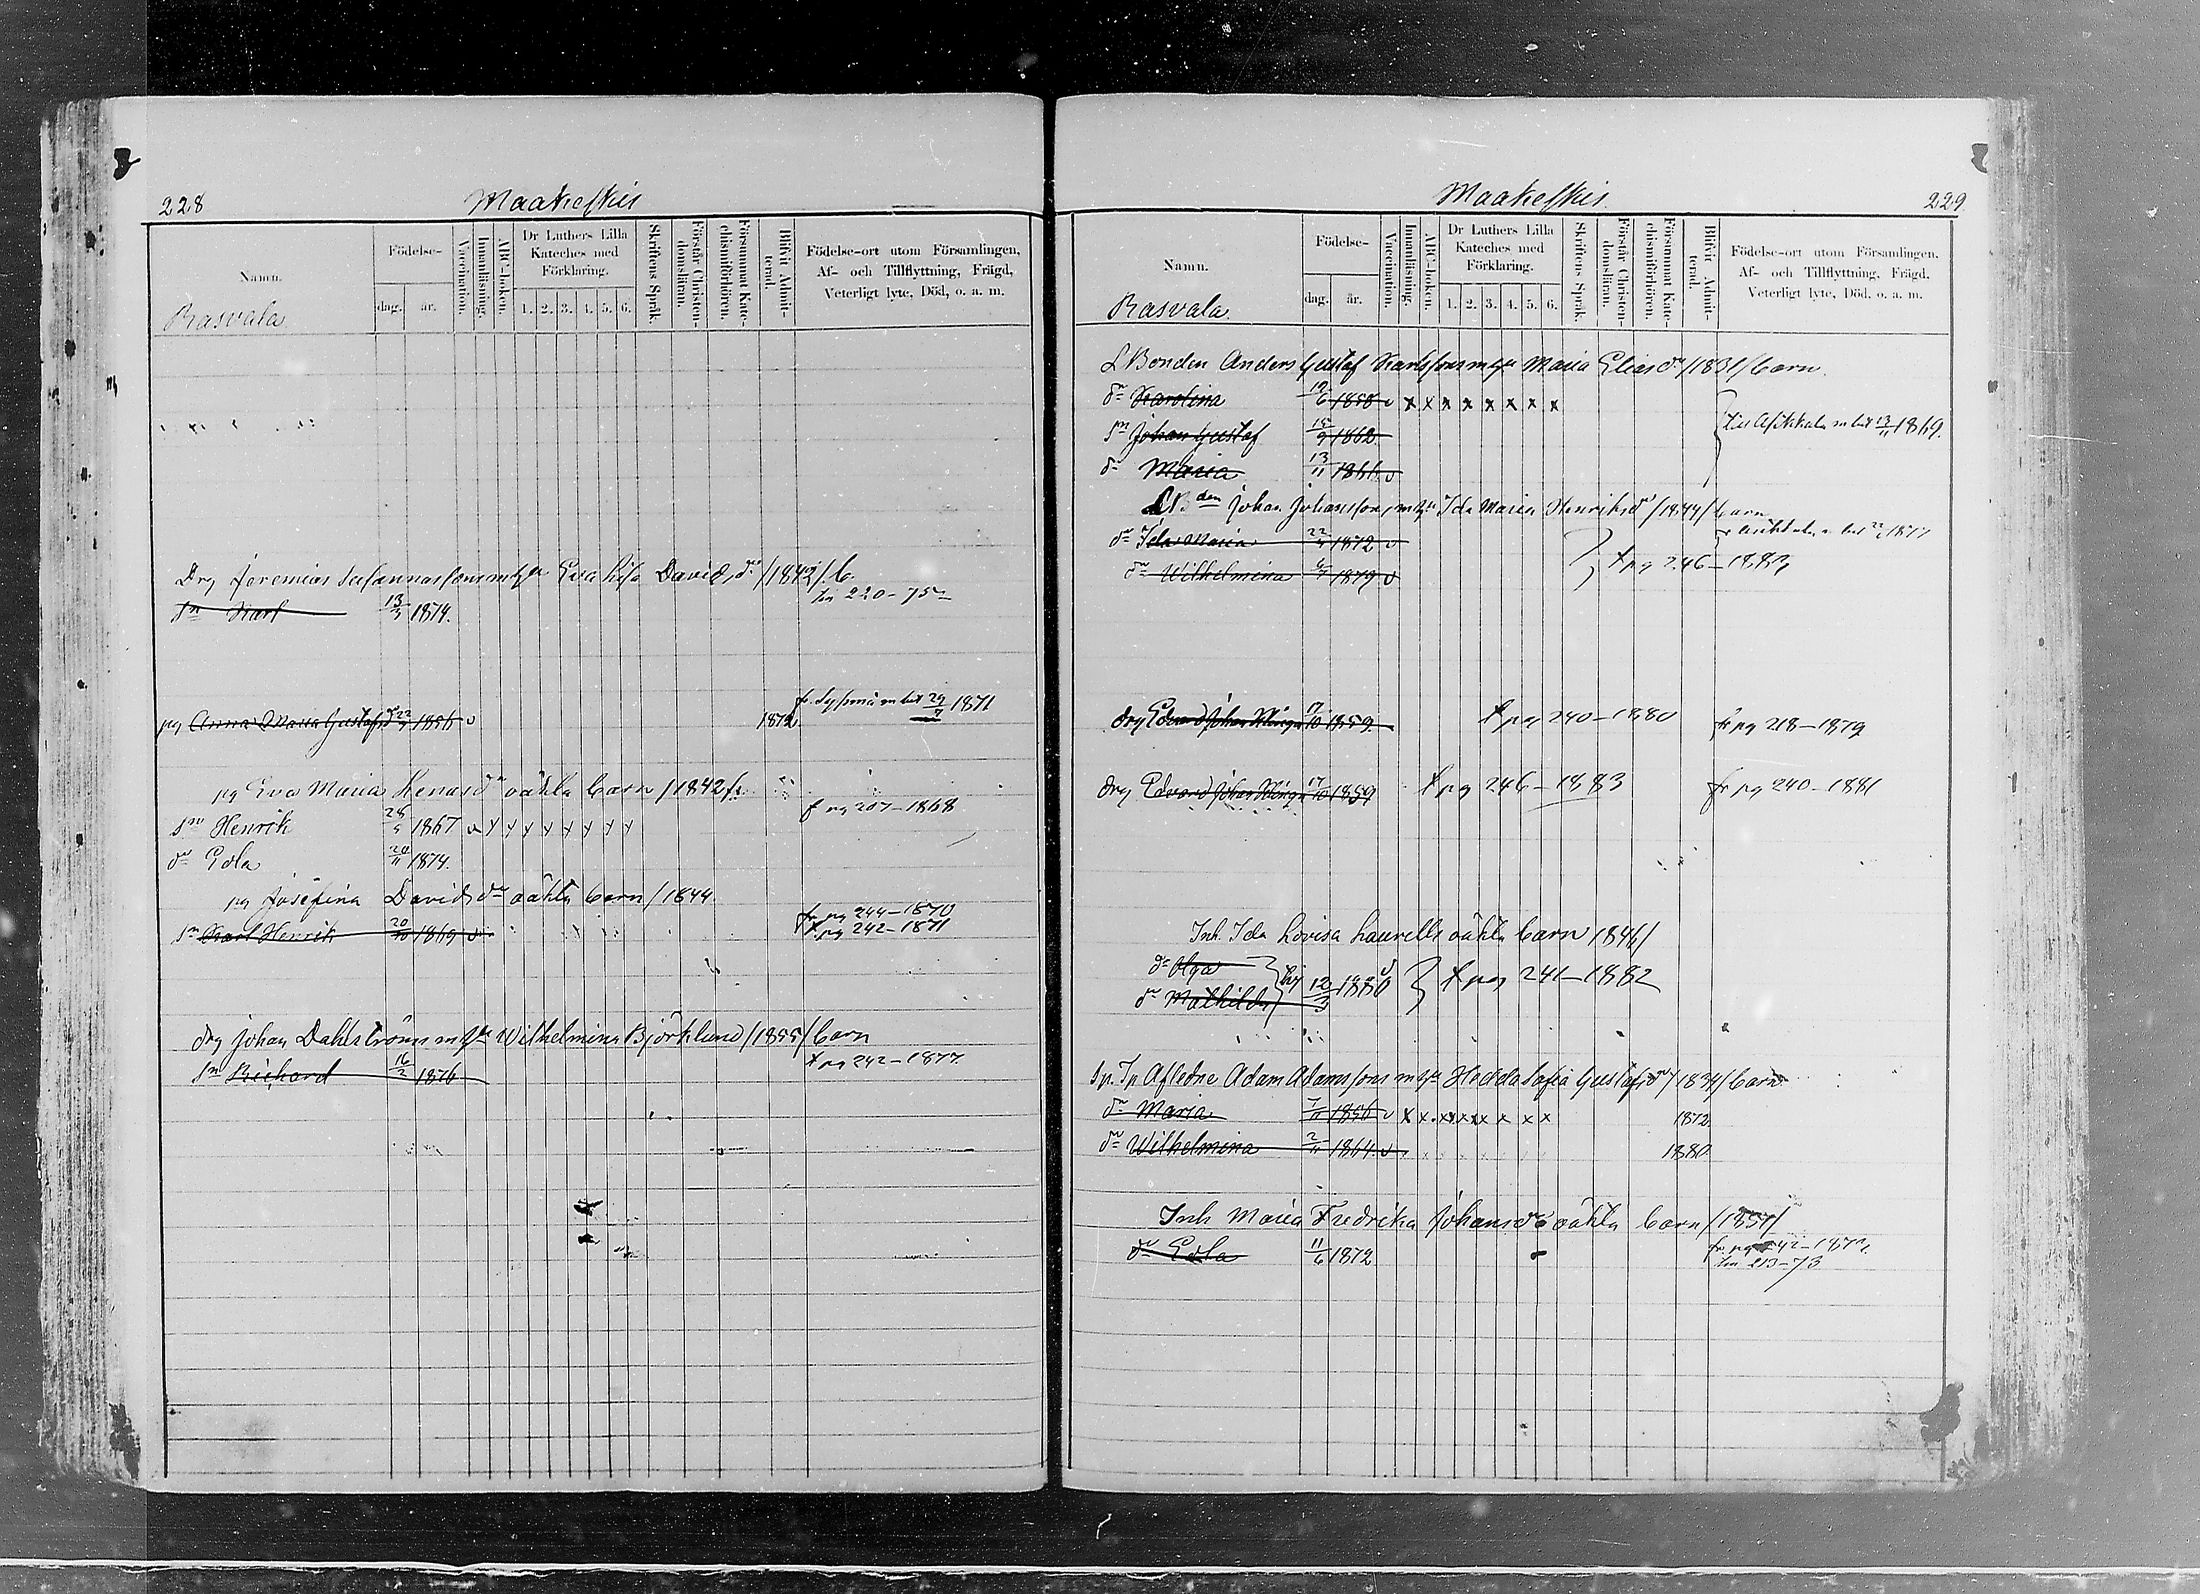 228
Maakeskis
Namn.
Födelse-
dag. år.
Vaccination.
Innanläsning.
ABC-boken.
Dr Luthers Lilla Kateches med Förklaring.
1. 2. 3. 4. 5. 6.
Skriftens Språk.
Förstår Christendomsläran.
Försummat Katechismiförhören.
Blifvit Admitterad.
Födelse-ort utom Församlingen,
Af- och Tillflyttning, Frägd,
Veterligt lyte, Död, o. a. m.
Rasvala
Drg Jeremias Susannasson m hu Eva Lisa Davidsdr /1842/ b.
sn Karl 13/3 1874. 220-75
pg Anna Maria Gustafsdr 22/9 1856 v 1872 fr. Sysmä m bet 29/7 1871
pg Eva Maria Lenasdr oäkta barn /1842/
sn Henrik 28/5 1867 v x x x x x x x x f pg 207-1868
dr Edla 20/11 1874.
pg Josefina Davidsdr oäkta barn /1844
sn Karl Henrik 20/10 1869 v fr pg 244-1870
t pg 242-1871
drg Johan Dahlström m hu Wilhelmina Björklund /1855/ barn
sn Richard 16/2 1876 t pg 242-1877
Maakeskis.
229.
Namn.
Födelse-
dag. år.
Vaccination.
Innanläsning.
ABC-boken.
Dr Luthers Lilla Kateches med Förklaring.
1. 2. 3. 4. 5. 6.
Skriftens Språk.
Förstår Christendomsläran.
Försummat Katechismiförhören.
Blifvit Admitterad.
Födelse-ort utom Församlingen,
Af- och Tillflyttning, Frägd,
Veterligt lyte, Död. o. a. m.
Rasvala.
L Bonden Anders Gustaf Karlsson m hu Maria Eliasdr /1831/ barn.
dr Karolina 12/6 1858 v x x x x x x x x
sn Johan Gustaf 15/9 1862 till Asikkala m bet 13/11 1869.
dr Maria 13/11 1866 v
LBden Johan Johansson, m hu Ida Maria Henriksdr /1844/ barn
dr Ida Maria 1872 v 1877
dr Wilhelmina 1879 v t pg 246-1883
drg Edvard Johan Klinga 17/10 1859. t pg 240-1880 fr pg 218-1879
drg Edvard Johan Klinga 17/10 1859 t pg 246-1883 fr pg 240-1881
Inh. Ida Lovisa Laurells oäkta barn 1846/
dr Olga
dr Mathilda 12/3 1880 v t pg 241-1882
Sp. Tp Aflidne Adam Adamsson m hu Hedda Sofia Gustafsdr /1834/ barn
dr Maria 7/11 1856 v x x x x x x x x 1872.
dr Wilhelmina 2/11 1864 v 1880.
Inh Maria Fredrika Johansdr oäkta barn /1851/
dr Edla 11/6 1872 213-73